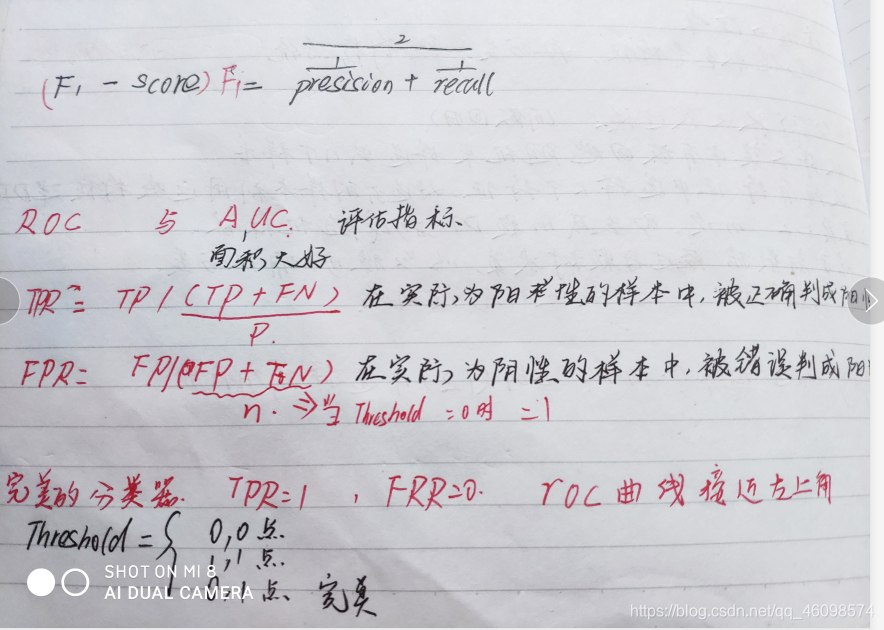 2
1 1
(F1 - score) F1 = presision + recall
ROC 与 AUC. 评估指标、
面积大好
TPR = TP / (TP + FN) 在实际为阳性的样本中，被正确判成阳
P.
FPR = FP/(FP + N) 在实际为阴性的样本中，被错误判成阳
n. ⇒当 Threshold = 0时 = 1
完美的分类器. TPR=1 , FRR=0. rOC曲线接近左上角
Threshold = { 0,0点.
1,1点.
0,1点、完美
SHOT ON MI 8
AI DUAL CAMERA
https://blog.csdn.net/qq_46098574